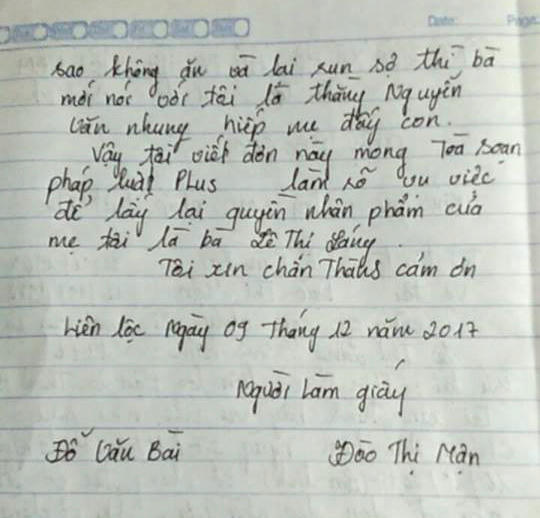 Date: Page:
sao không ăn và lai sun sợ thì bà
mới nói với tôi là thằng Nguyễn
Văn nhung hiếp mẹ đấy con.
Vậy tôi viết đơn này mong Toà soạn
pháp luật Plus làm rõ vu việc
để lấy lại quyền nhân phẩm của
mẹ tôi là bà Lê Thị Láng.
Tôi xin chân Thành cám ơn
Liên lộc Ngày 09 tháng 12 năm 2017
Người Làm giấy
Đỗ Văn Bài Đào Thị Mận